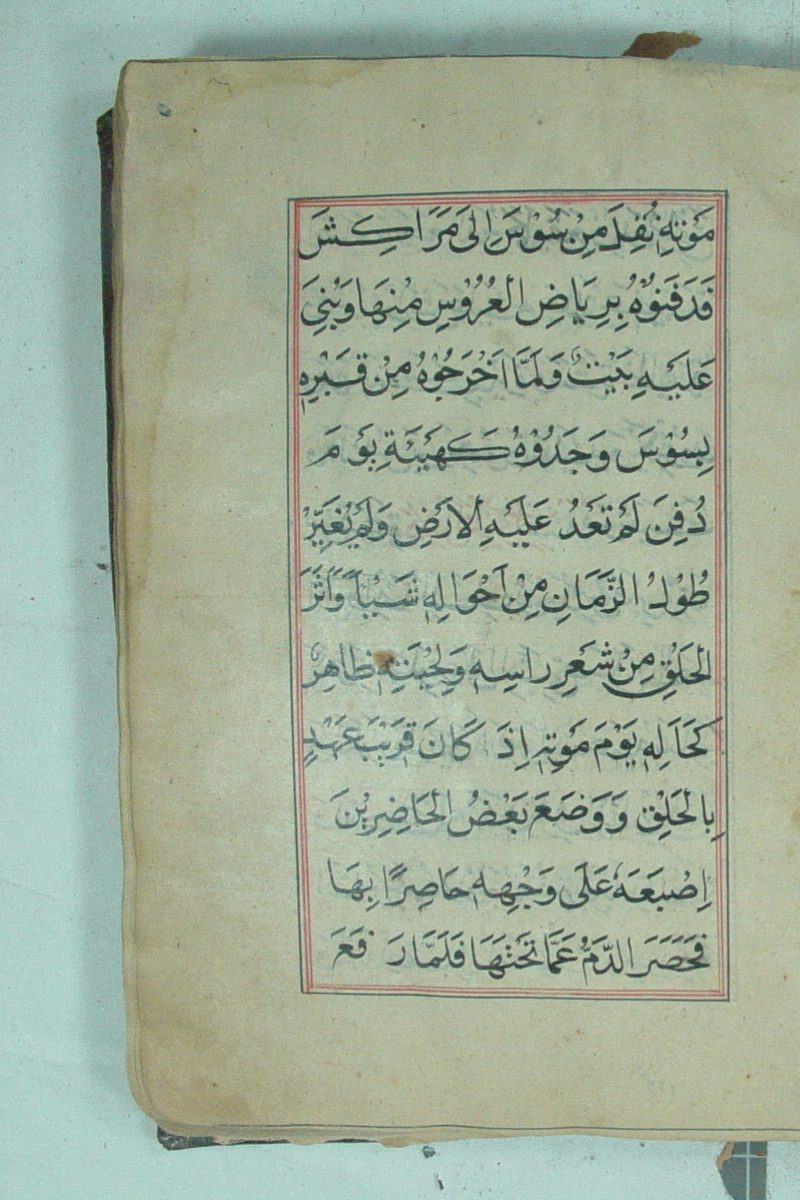 مَوْتِهِ نُقِلَ مِنْ سُوْسَ اِلَى مَرَّاكِشَ
فَدَفَنُوْهُ بِرِيَاضِ الْعُرُوْسِ مِنْهَا وَبُنِىَ
عَلَيْهِ بَيْتٌ وَلَمَّا اَخْرَجُوْهُ مِنْ قَبْرِهِ
بِسُوْسَ وَجَدُوْهُ كَهَيْئَةِ يَوْمَ
دُفِنَ لَمْ تَعْدُ عَلَيْهِ الْاَرْضُ وَلَمْ يُغَيِّرْ
طُوْلُ الزَّمَانِ مِنْ اَحْوَالِهِ شَيْئاً وَاَثَرَ
الْحَلْقِ مِنْ شَعَرِ رَاسِهِ وَلِحْيَتِهِ ظَاهِرٌ
كَحَالِهِ يَوْمَ مَوْتِهِ اِذْ كَانَ قَرِيْبَ عَهْدٍ
بِالْحَلْقِ وَوَضَعَ بَعْضُ الْحَاضِرِيْنَ
اِصْبَعَهُ عَلَى وَجْهِهِ حَاصِرًا بِهَا
فَحَصَرَ الدَّمُ عَمَّا تَحْتَهَا فَلَمَّا رَفَعَ